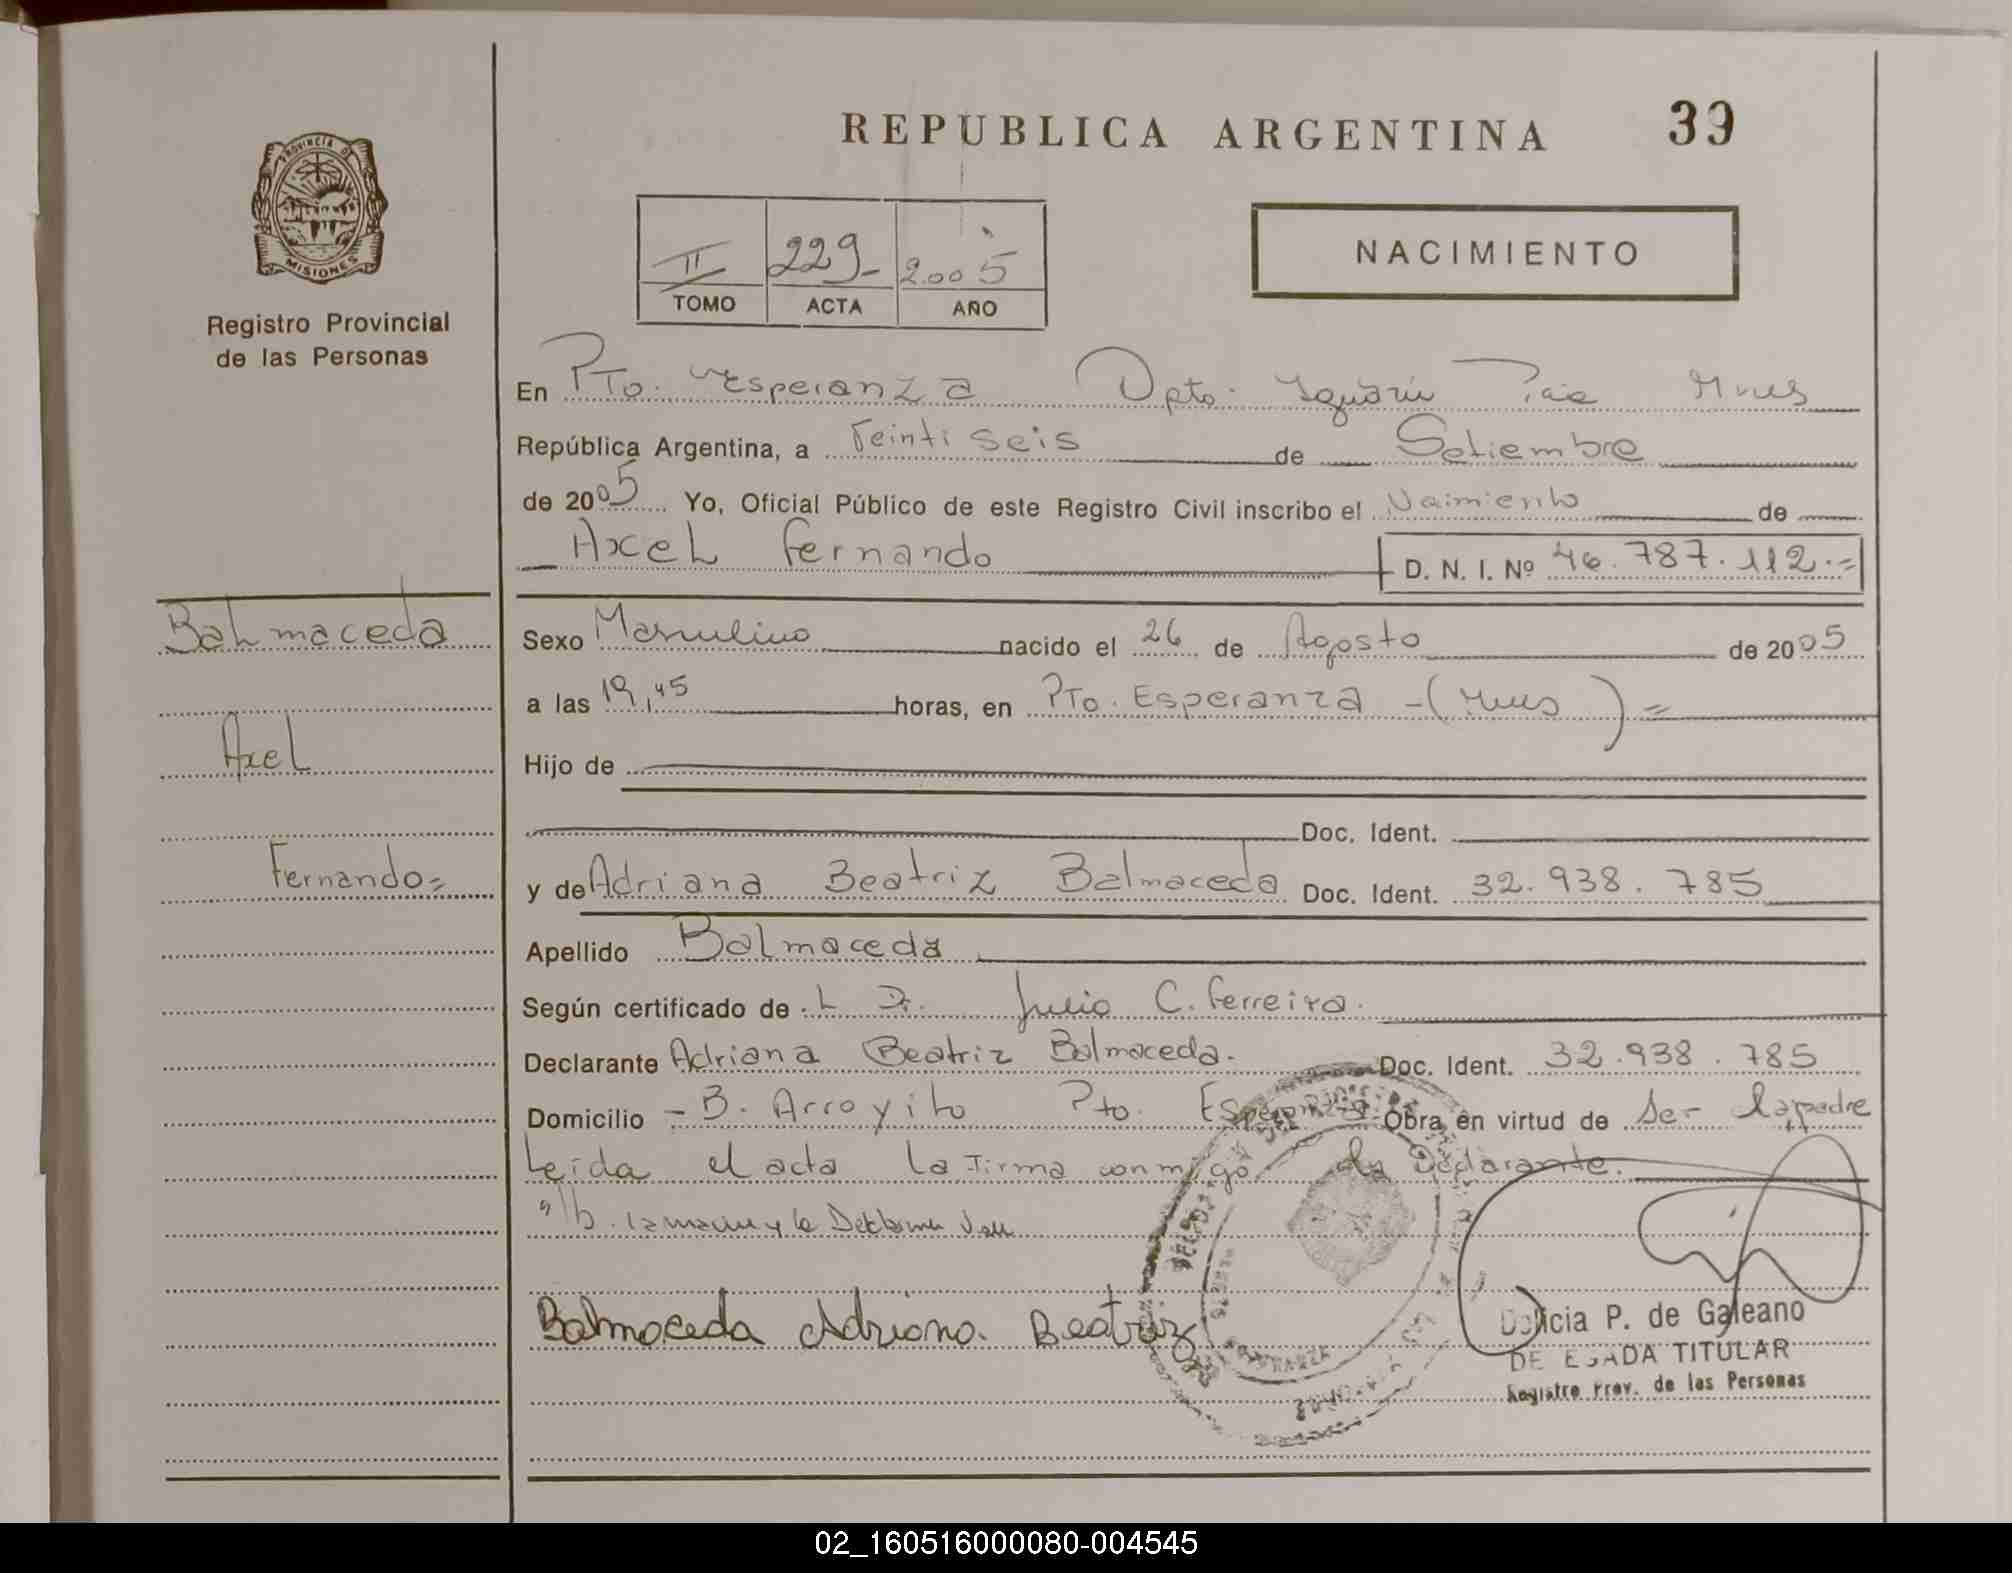 REPUBLICA ARGENTINA
39
PROVINCIA DE
MISIONES
Registro Provincial
de las Personas
II 229- 2.005
TOMO ACTA AÑO
NACIMIENTO
En Pto. Esperanza Dpto. Iguazú Pcia Mnes
República Argentina, a Veinti seis de Setiembre
de 2005 Yo, Oficial Público de este Registro Civil inscribo el Naimiento de
Axel Fernando D. N. I. Nº 46.787.112.=
Balmaceda
Axel
Fernando=
Sexo Masculino nacido el 26 de Agosto de 2005
a las 19,45 horas, en Pto. Esperanza -(Mnes)=
Hijo de
Doc. Ident.
y de Adriana Beatriz Balmaceda Doc. Ident. 32.938.785
Apellido Balmaceda
Según certificado de L Dr. Julio C. Ferreira.
Declarante Adriana Beatriz Balmaceda. Doc. Ident. 32.938.785
Domicilio - B. Arroyito Pto. Esperanza Obra en virtud de Ser la padre
Leida el acta la firma conmigo la Declarante.
Balmaceda Adriana Beatriz
Delicia P. de Galeano
DELEGADA TITULAR
Registro Prov. de las Personas
02_160516000080-004545